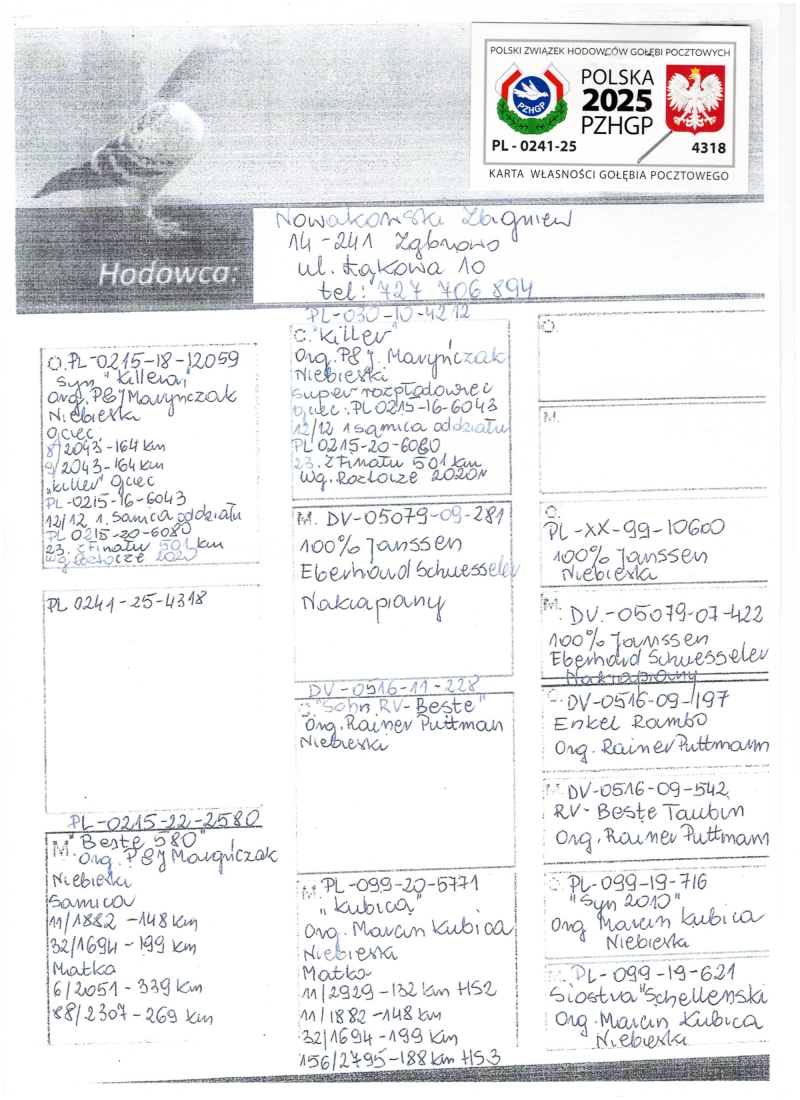 POLSKI ZWIĄZEK HODOWCÓW GOŁĘBI POCZTOWYCH
PZHGP
POLSKA
2025
PZHGP
PL - 0241-25
4318
KARTA WŁASNOŚCI GOŁĘBIA POCZTOWEGO
Hodowca:
Nowakowski Zbigniew
14-241 Ząbrowo
ul. Łąkowa 10
tel: 727 706 894
O. PL-0215-18-12059
Syn "Killera"
Org. P&J Maryńczak
Niebieski
Ojciec
8/2043-164 km
9/2043-164 km
"Killer" Ojciec
PL-0215-16-6043
12/12 1. Samica oddziału
PL 0215-20-6080
23. z Finału 501 km
wg. Roztocze 2020
PL 0241-25-4318
PL-0215-22-2580
M. "Beste 580"
Org. P&J Maryńczak
Niebieski
Samica
11/1882 -148 km
32/1694 -199 km
Matka
6/2051 - 339 km
88/2307 -269 km
PL-030-10-4212
O. "Killer"
Org. P&J. Maryńczak
Niebieski
super rozpłodowiec
Ojciec: PL 0215-16-6043
12/12 1 samica oddziału
PL 0215-20-6080
23. z Finału 501 km
Wg. Roztocze 2020r
M. DV-05079-09-281
100% Janssen
Eberhard Schuesseler
Nakrapiany
DV-0516-11-228
O. "Sohn RV-Beste"
Org. Rainer Puttman
Niebieski
M. PL-099-20-5771
"Kubica"
Org. Marcin Kubica
Niebieska
Matka
11/2929 -132 km HS2
11/1882 -148 km
32/1694 -199 km
156/2795-188 km HS3
O.
M.
O.
PL-XX-99-10600
100% Janssen
Niebieska
M. DV.-05079-07-422
100% Janssen
Eberhard Schuesseler
Nakrapiany
O. DV-0516-09-197
Enkel Rambo
Org. Rainer Puttmann
M. DV-0516-09-542
RV-Beste Taubin
Org. Rainer Puttmann
O. PL-099-19-716
"Syn 2010"
Org Marcin Kubica
Niebieski
M. PL-099-19-621
Siostra "Schellenski
Org. Marcin Kubica
Niebieski